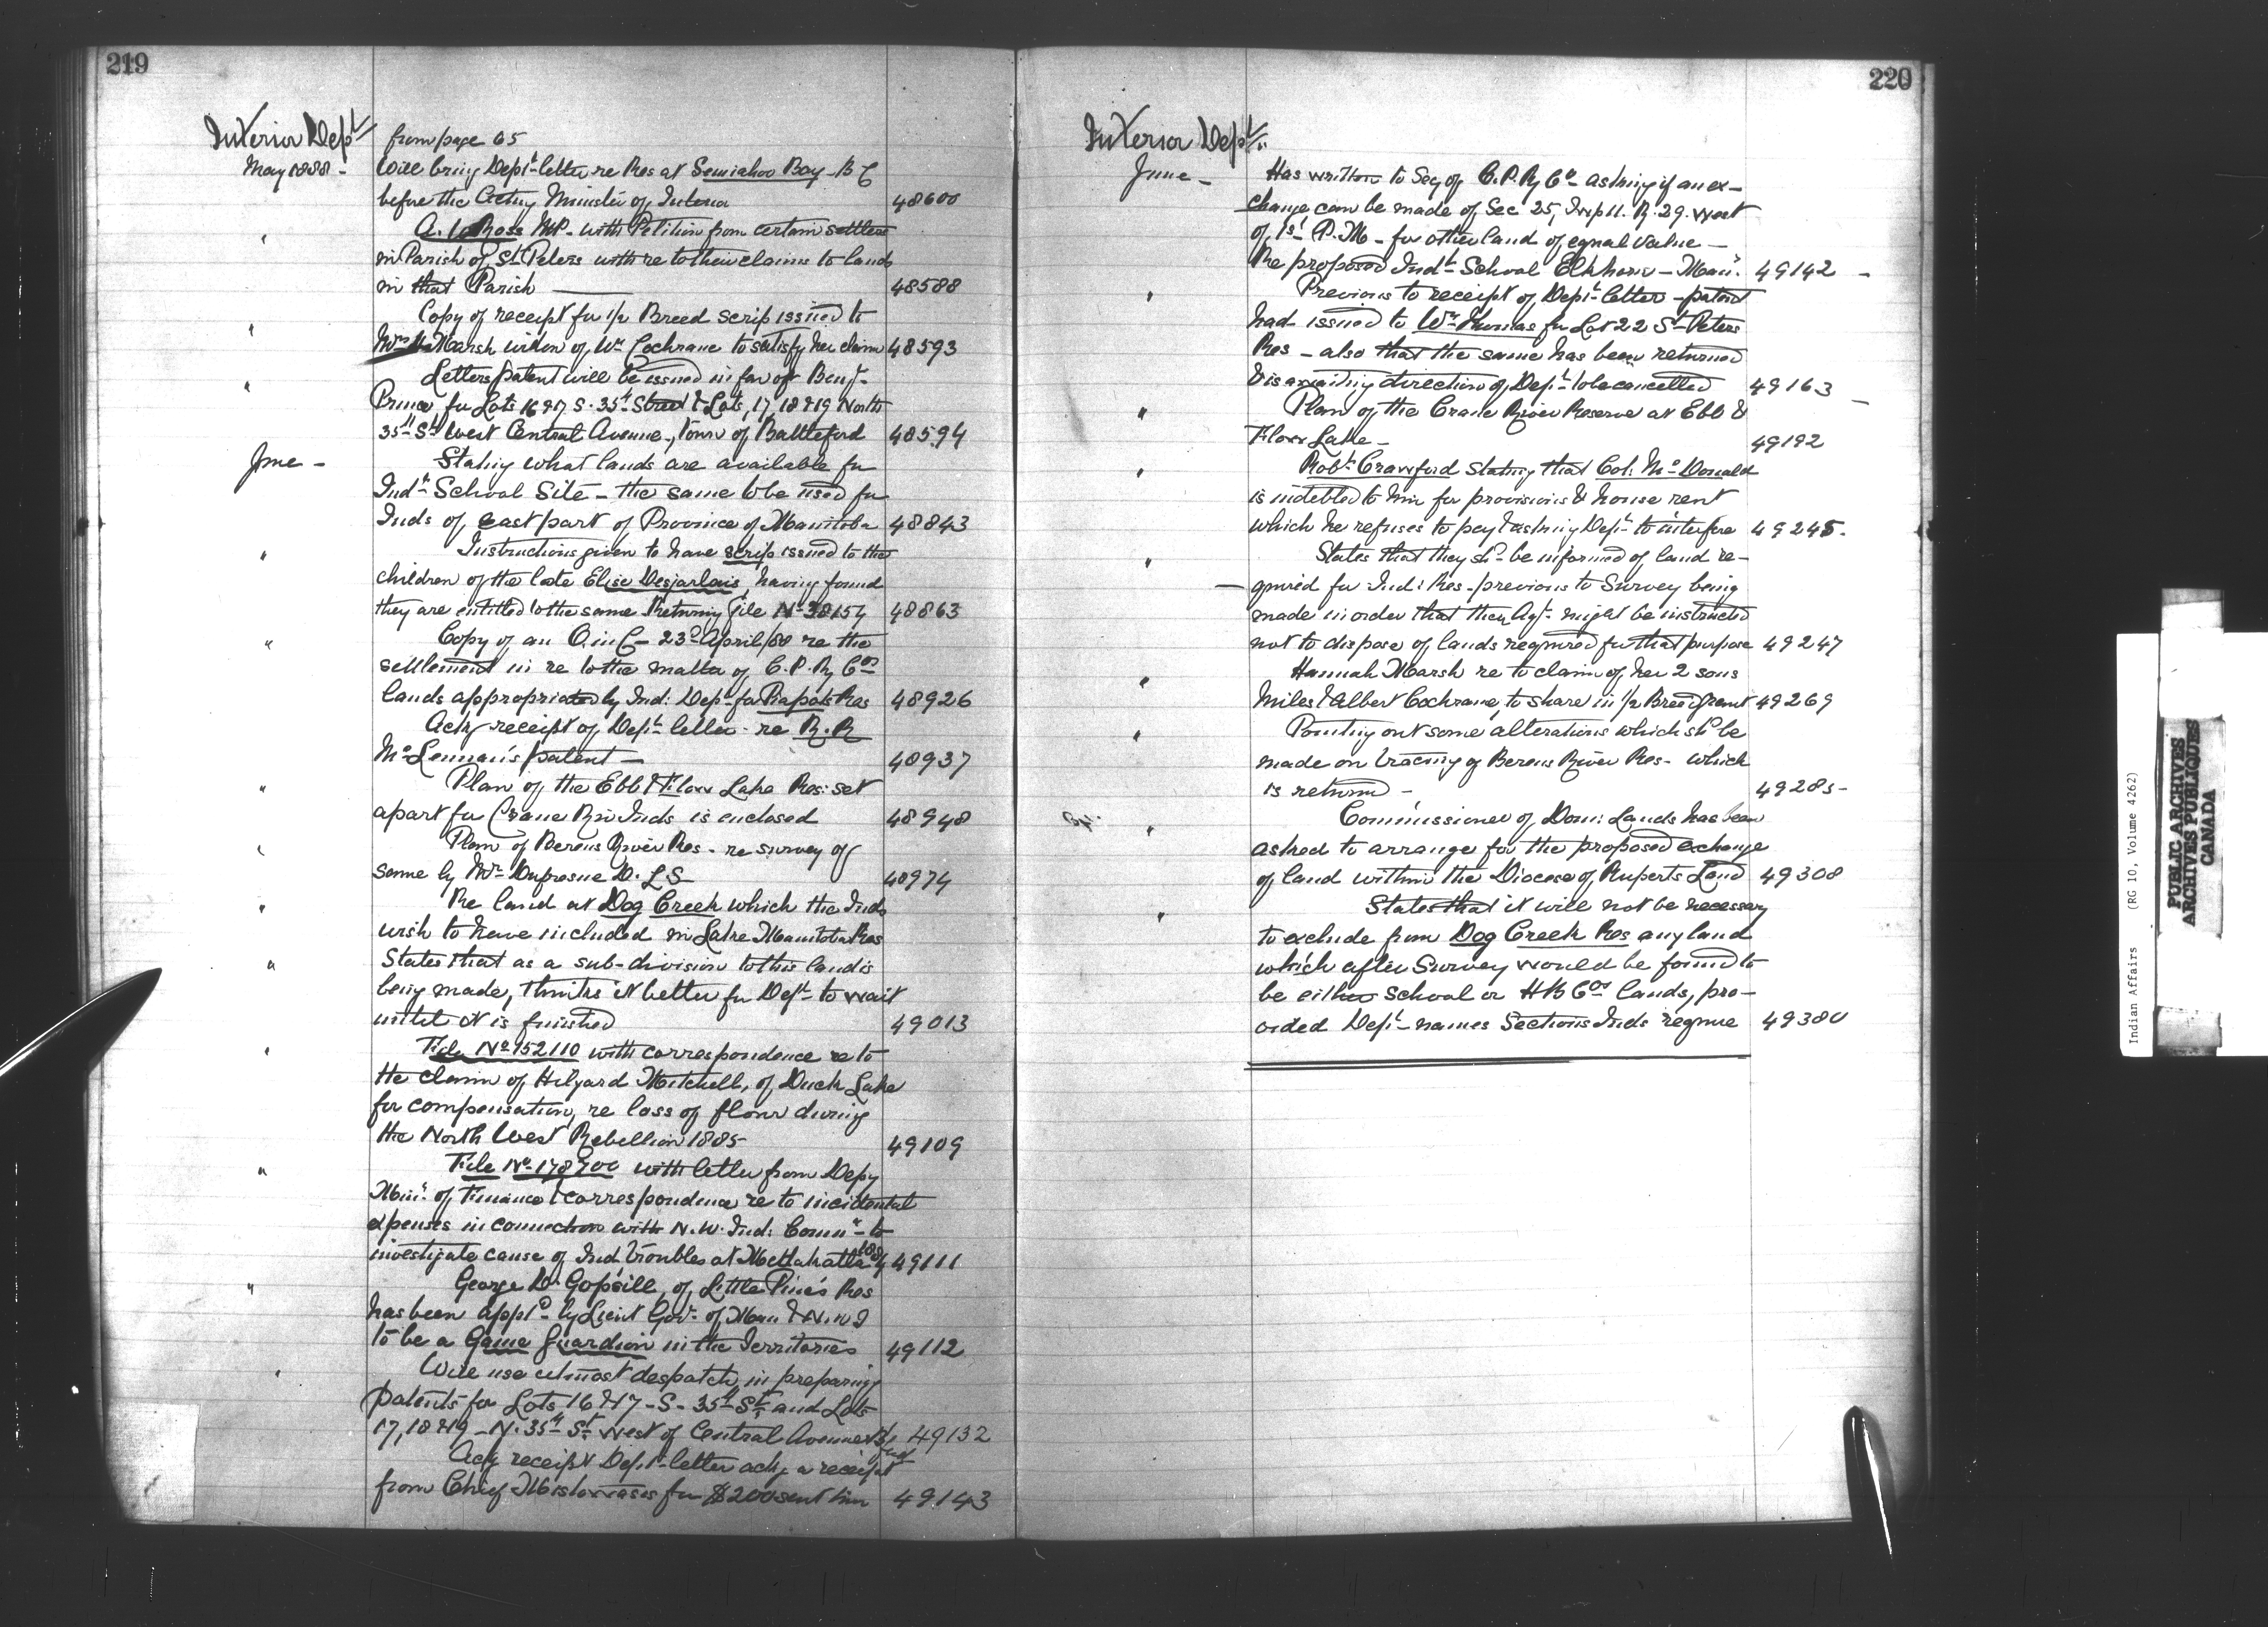 219
Interior Dept
from page 65
May 1888 - Will bring Dept letter re Res at Semiahoo Bay - B C
before the Acting Minister of Interior 48600
" A. W Ross MP - with Petition from certain settlers
in Parish of St Peters with re to their claims to lands
in that Parish — 48588
" Copy of receipt for 1/2 Breed scrip issued to
Mrs Marsh widow of Wm Cochrane to satisfy her claim 48593
" Letters patent will be issued in favor Benj.
Prince, for Lots 16 & 17 S. 35th Street & Lots, 17, 18 & 19 North
35th St West Central Avenue, Town of Battleford 48594
June - Stating what lands are available for
Indl School Site - the same to be used for
Inds of east part of Province of Manitoba 48843
" Instructions given to have scrip issued to the
children of the late Elise Desjarlais, having found
they are entitled to the same Returning file No 38154 48863
" Copy of an O. in C - 23d April/88 re the
settlement in re to the matter of C. P. Ry Cos
lands appropriated by Ind: Dept for Piapots Res 48926
Ackg receipt of Dept letter - re R. R
McLennan's patent — 48937
" Plan of the Ebb & Flow Lake Res: set
apart for Crane Riv Inds is enclosed 48948
" Plan of Berens River Res - re survey of
same by Mr Dufresne D. L S 48974
" Re land at Dog Creek which the Inds
wish to have included in Lake Manitoba Res
" States that as a sub-division to this land is
being made, thinks it better for Dept to wait
until it is finished 49013
" File No 152110 with correspondence re to
the claim of Hilyard Mitchell, of Duck Lake
for compensation, re loss of flour during
the North West Rebellion 1885 - 49109
" File No 178700 with letter from Depy
Minr of Finance & correspondence re to incidental
expenses in connection with N. W. Ind: Commn - to
investigate cause of Ind troubles at Metlakatla 49111
" George D. Gopsill, of Little Pine's Res
has been apptd by Lieut Govr of Man & N. W T
to be a Game Guardian in the Territories 49112
" Will use utmost despatch in preparing
patents for Lots 16 & 17 - S - 35th St and Lots
17, 18 & 19 - N. 35th St West of Central Avenue 49132
Ackg receipt Dept letter ackg a receipt
from Chief Mistowasis for $200 sent him 49143
220
Interior Dept
June - Has written to Secy of C. P. Ry Co - asking if an ex-
change can be made of Sec 25, Twp 11. R. 29. West
of, 1st P. M - for other land of equal value -
Re proposed Indl School Elkhorn - Man: 49142 -
" Previous to receipt of Dept letter - patent
had issued to Wm Thomas for Lot 22 St Peters
Res - also that the same has been returned
& is awaiting direction of Dept to be cancelled 49163 -
" Plan of the Crane River Reserve at Ebb &
Flow Lake - 49192
" Robt Crawford stating that Col: McDonald
is indebted to him for provisions & house rent
which he refuses to pay & asking Dept to interfere 49245 -
" States that they shd be informed of land re-
- quired for Ind: Res - previous to Survey being
made in order that their Agt might be instructed
not to dispose of lands required for that purpose 49247
" Hannah Marsh re to claim of her 2 sons
Miles & Albert Cochrane, to share in 1/2 Breed grant 49269
" Pointing out some alterations which shd be
made on tracing of Berens River Res - which
is returned - 49285 -
" Commissioner of Dom: Lands has been
asked to arrange for the proposed exchange
of land within the Diocese of Ruperts Land 49308
" States that it will not be necessary
to exclude from Dog Creek Res any land
which after Survey would be found to
be either School or H B Cos lands, pro-
vided Dept names Sections Inds require 49380
Indian Affairs (RG 10, Volume 4262)
PUBLIC ARCHIVES
ARCHIVES PUBLIQUES
CANADA